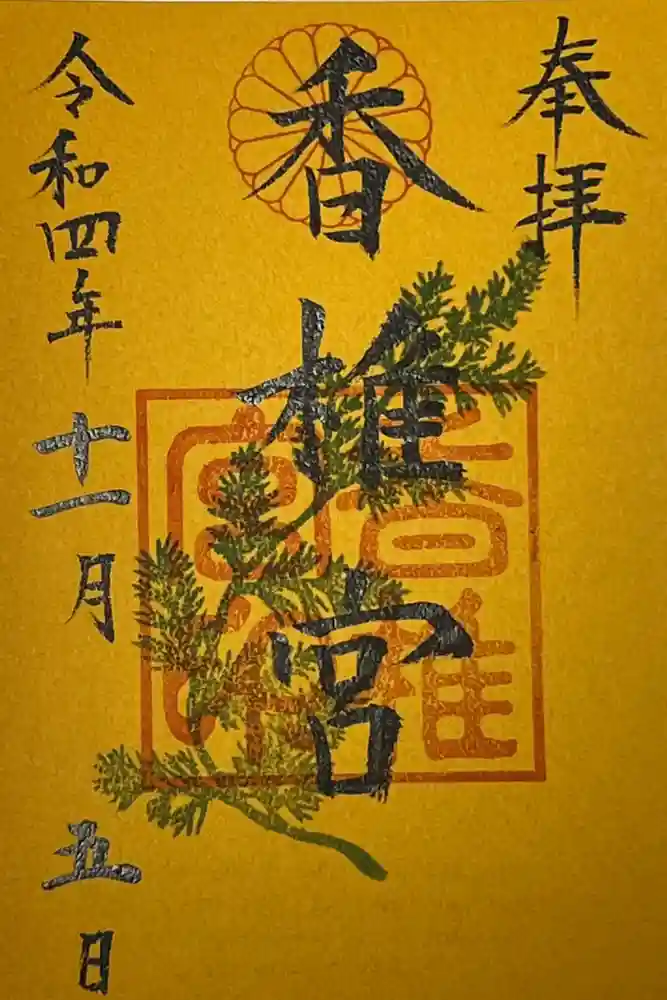 奉拝
香椎宮
令和四年十一月五日